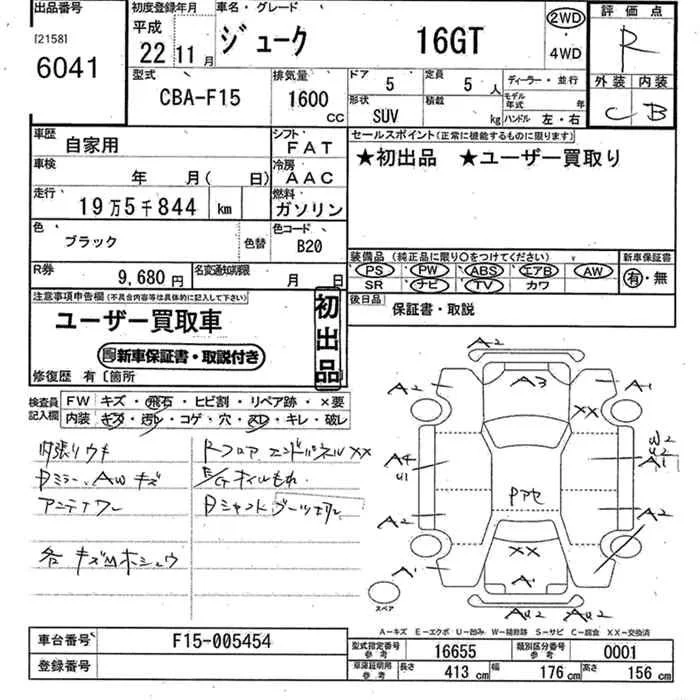 出品番号
[2158]
6041
初度登録年月
平成
22 11月
車名・グレード
ジューク 16GT
2WD
・
4WD
評価点
R
外装 内装
C B
型式
CBA-F15
排気量
1600
cc
ドア
5
定員
5 人
形状
SUV
積載
kg
ディーラー・並行
モデル年式 年
ハンドル 左・右
車歴
自家用
シフト
FAT
車検
年 月( 日)
冷房
AAC
走行
19万5千844 km
燃料
ガソリン
色
ブラック
色替
色コード
B20
R券
9,680円
名変通知期限
月 日
セールスポイント(正常に機能するものに限ります)
★初出品 ★ユーザー買取り
装備品(純正品に限り○をつけてください)
PS PW ABS エアB AW
SR ナビ TV カワ
新車保証書
有・無
後日品
保証書・取説
注意事項申告欄(不具合内容等は具体的に記入して下さい)
ユーザー買取車
新車保証書・取説付き
初出品
修復歴 有〔箇所
検査員記入欄
FW キズ・飛石・ヒビ割・リペア跡・×要
内装 キズ・汚レ・コゲ・穴・スレ・キレ・破レ
内張りウキ
Dミラー、AWキズ
アンテナワレ
各キズM ホシュウ
Rフロア エンドパネルXX
E/Gオイルもれ
A2
A3
A2
A1
XX
W2
U2
A1
A4
U1
Pアセ
A2
A2
XX
A1
A1
AU2 AU2
スペア
A-キズ E-エクボ U-凹み W-補修跡 S-サビ C-腐食 XX-交換済
車台番号
F15-005454
登録番号
型式指定番号
参考
16655
類別区分番号
参考
0001
車庫証明用
参考
長さ 413 cm
幅 176 cm
高さ 156 cm